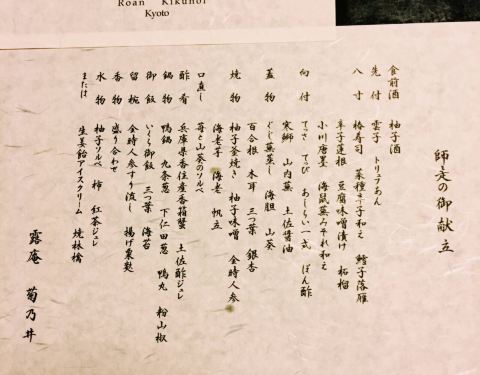 Roan Kikunoi
Kyoto
師走の御献立
食前酒 柚子酒
先付 雲子 トリュフあん
八寸 椿寿司 菜種辛子和え 鱈子落雁
辛子蓮根 豆腐味噌漬け 柘榴
小川唐墨 海鼠蕪みぞれ和え
向付 てっさ てっぴ あしらい一式 ぽん酢
寒鰤 山内蕪 土佐醤油
蓋物 ぐじ蕪蒸し 海胆 山葵
百合根 木耳 三つ葉 銀杏
焼物 柚子釜焼き 柚子味噌 金時人参
海老芋 海老 帆立
口直し 苺と山葵のソルベ
酢肴 兵庫県香住産香箱蟹 土佐酢ジュレ
鍋物 鴨鍋 九条葱 下仁田葱 鴨丸 粉山椒
御飯 いくら御飯 三つ葉 海苔
留椀 金時人参すり流し 揚げ粟麩
香物 盛り合わせ
水物 柚子ソルベ 柿 紅茶ジュレ
または 生姜飴アイスクリーム 焼林檎
露庵 菊乃井